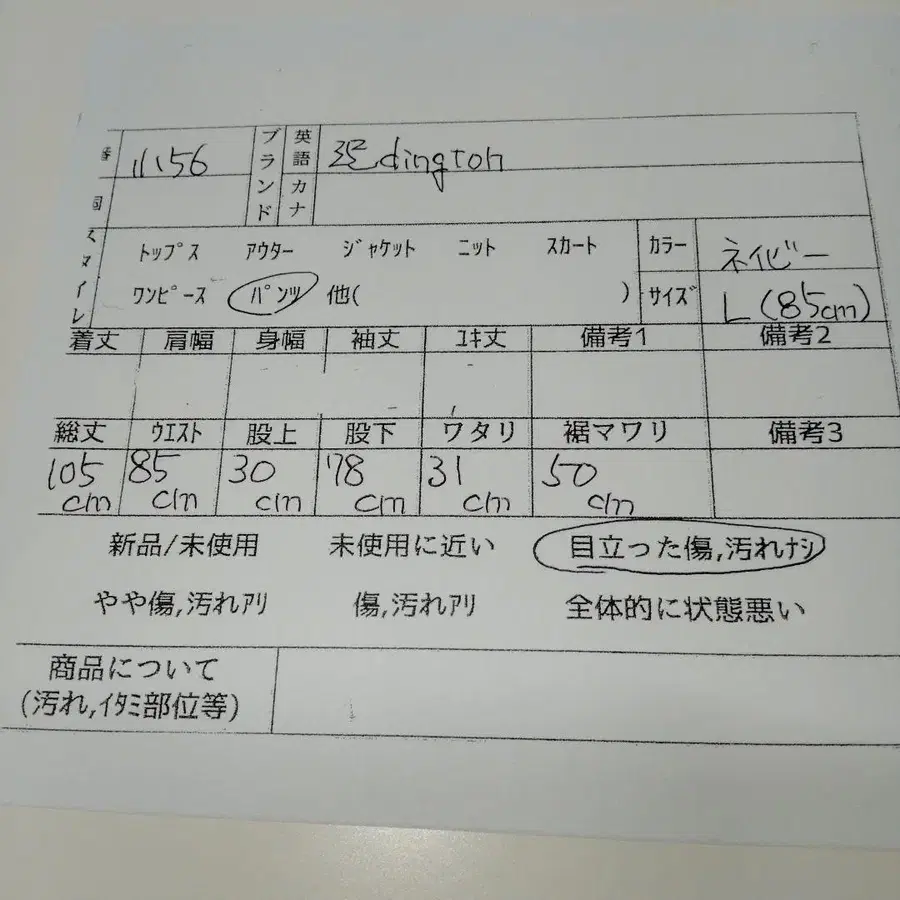 番 11156 ブランド 英語 dington
カナ
スタイル トップス アウター ジャケット ニット スカート カラー ネイビー
ワンピース パンツ 他( ) サイズ L(85cm)
着丈 肩幅 身幅 袖丈 ユキ丈 備考1 備考2
総丈 ウエスト 股上 股下 ワタリ 裾マワリ 備考3
105cm 85cm 30cm 78cm 31cm 50cm
新品/未使用 未使用に近い 目立った傷,汚れナシ
やや傷,汚れアリ 傷,汚れアリ 全体的に状態悪い
商品について
(汚れ,イタミ部位等)